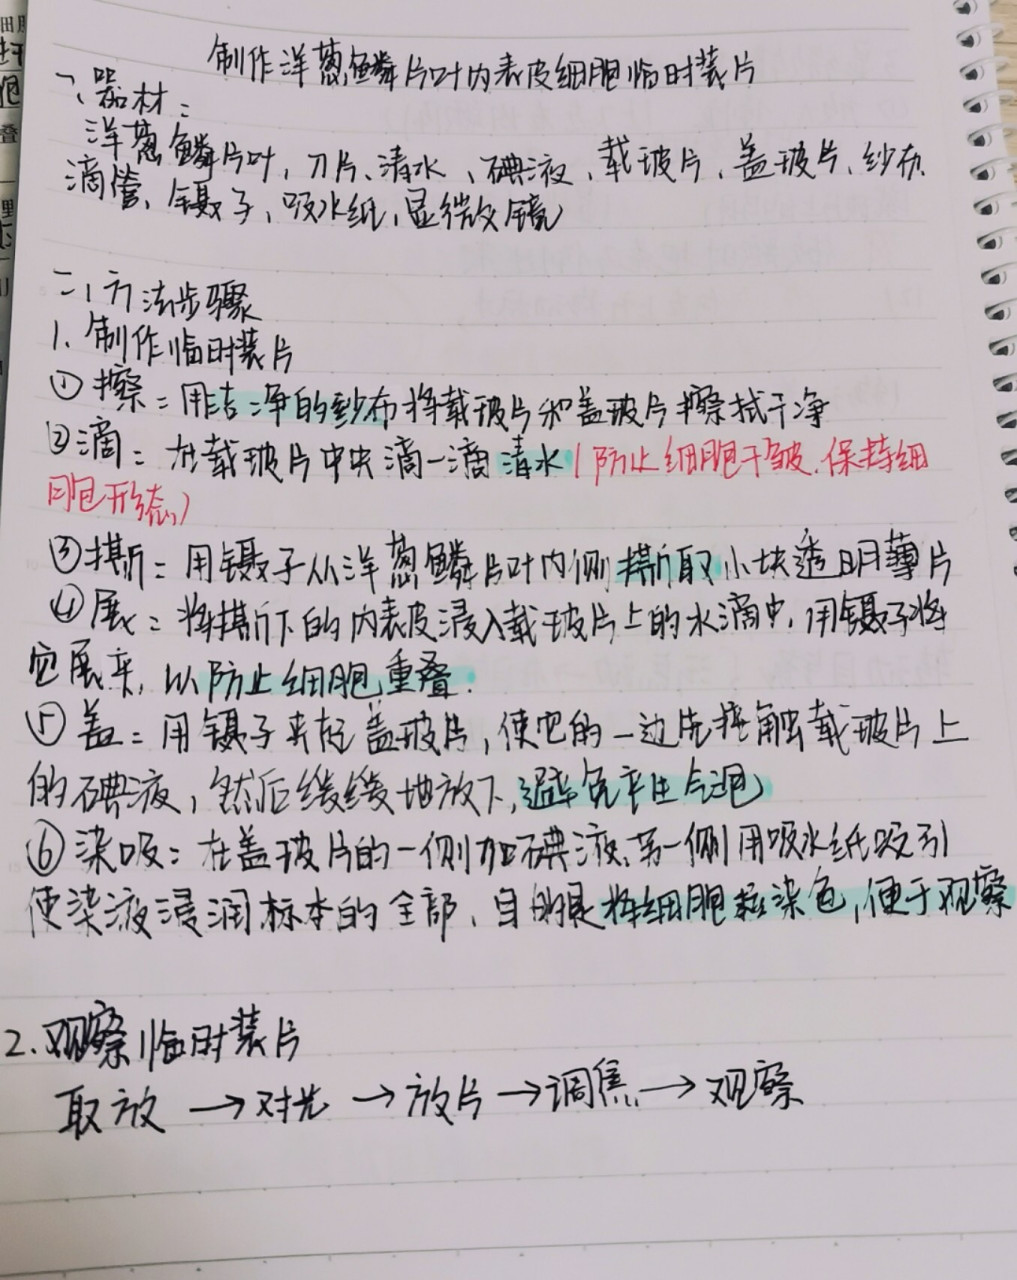 制作洋葱鳞片叶内表皮细胞临时装片
一、器材：
洋葱鳞片叶，刀片、清水、碘液、载玻片、盖玻片、纱布、
滴管、镊子、吸水纸、显微镜
二、方法步骤
1、制作临时装片
①擦：用洁净的纱布将载玻片和盖玻片擦拭干净
②滴：在载玻片中央滴一滴清水（防止细胞干皱、保持细
胞形态）
③撕：用镊子从洋葱鳞片叶内侧撕取小块透明薄片
④展：将撕下的内表皮浸入载玻片上的水滴中，用镊子将
它展平，以防止细胞重叠.
⑤盖：用镊子夹起盖玻片，使它的一边先接触载玻片上
的碘液，然后缓缓地放下，避免产生气泡
⑥染吸：在盖玻片的一侧加碘液、另一侧用吸水纸吸引
使染液浸润标本的全部、目的是将细胞染色，便于观察
2.观察临时装片
取放→对光→放片→调焦→观察